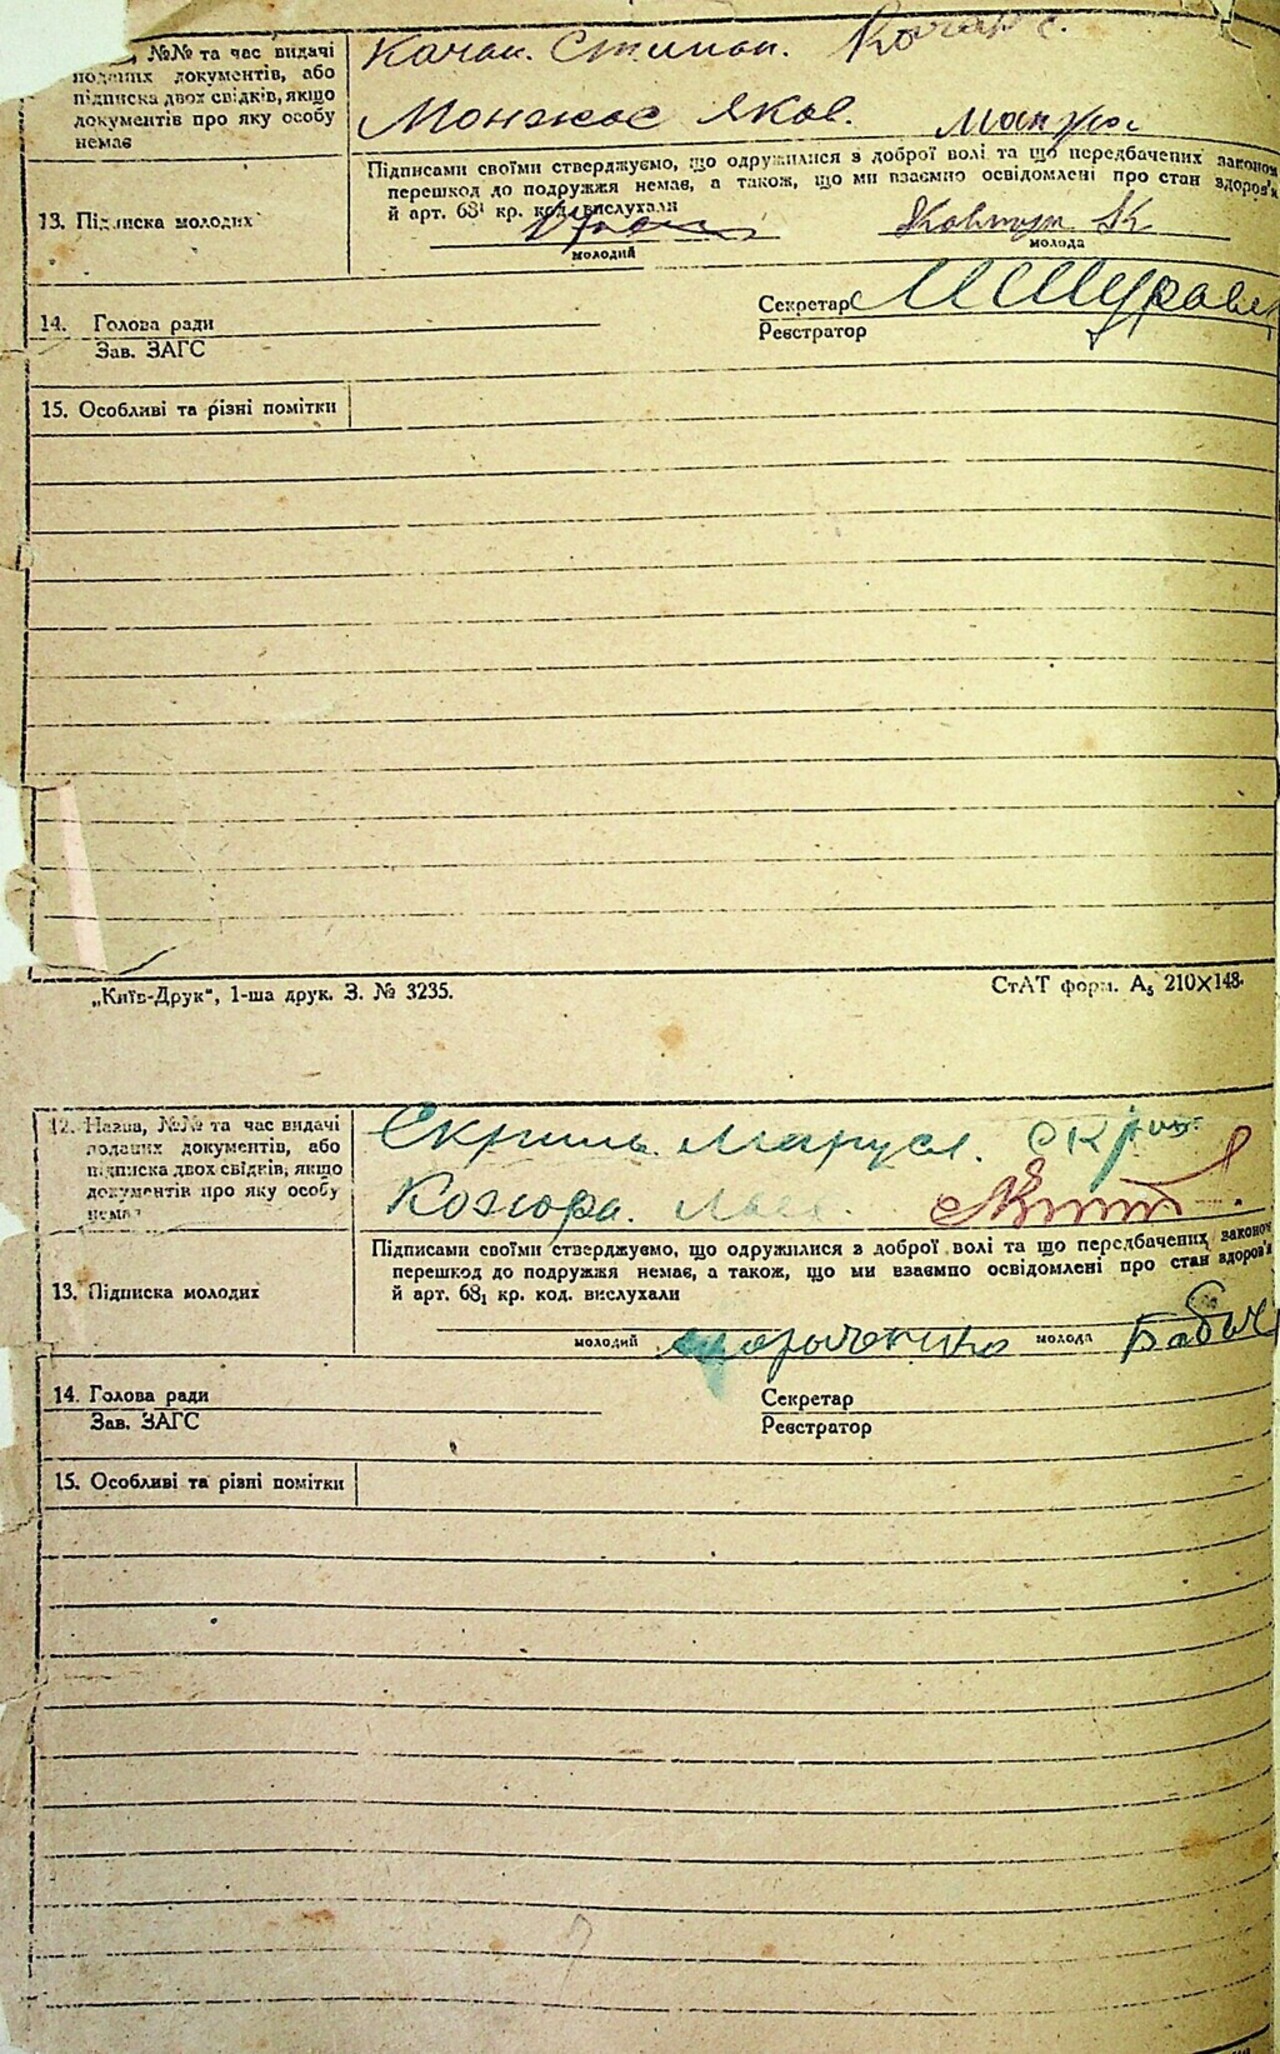 №№ та час видачі
поданих документів, або
підписка двох свідків, якщо
документів про яку особу
немає
Качан. Степан. Качан С.
Монжос Яков.
13. Підписка молодих
Підписами своїми стверджуємо, що одружилися з доброї волі та що передбачених законом
перешкод до подружжя немає, а також, що ми взаємно освідомлені про стан здоров'я
й арт. 68¹ кр. код. вислухали
Ковтун К
молодий молода
14. Голова ради
Зав. ЗАГС
Секретар
Реєстратор
15. Особливі та різні помітки
„Київ-Друк“, 1-ша друк. З. № 3235. СтАТ форм. А₅ 210×148.
12. Назва, №№ та час видачі
поданих документів, або
підписка двох свідків, якщо
документів про яку особу
немає
Скриль. Маруся.
Козюра.
13. Підписка молодих
Підписами своїми стверджуємо, що одружилися з доброї волі та що передбачених законом
перешкод до подружжя немає, а також, що ми взаємно освідомлені про стан здоров'я
й арт. 68₁ кр. код. вислухали
молодий молода Бабич
14. Голова ради
Зав. ЗАГС
Секретар
Реєстратор
15. Особливі та різні помітки